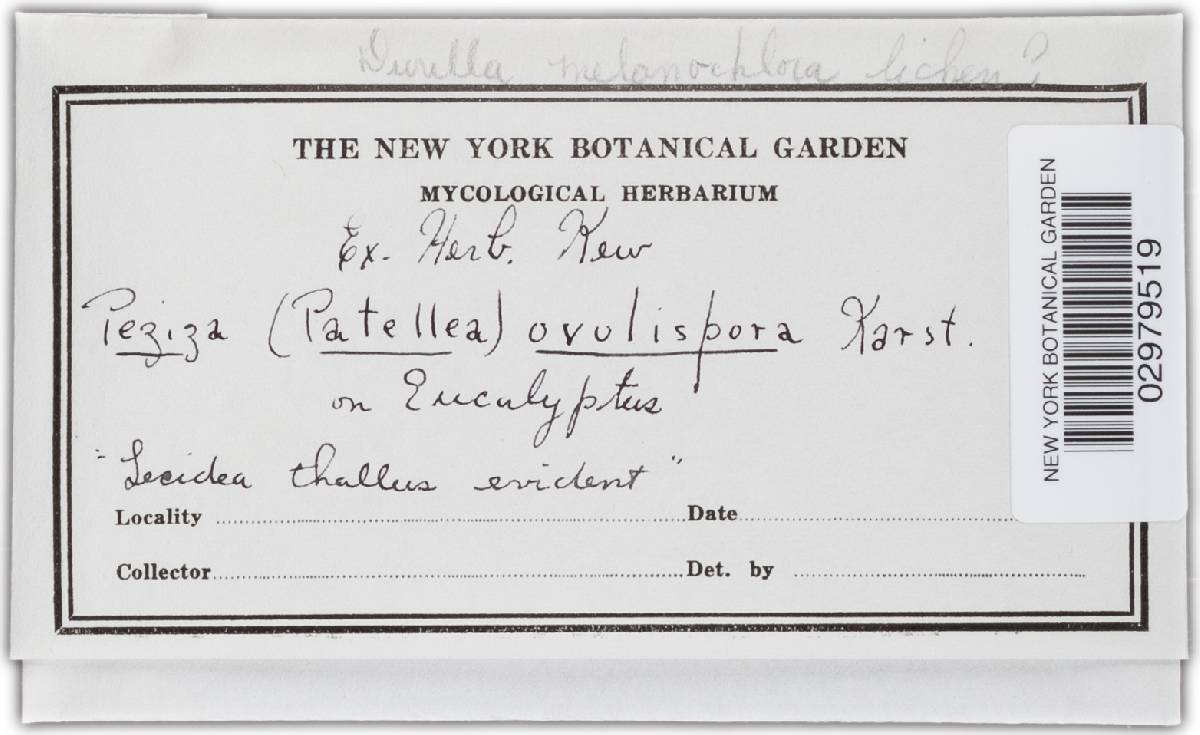 Durella melanochlora lichen?
THE NEW YORK BOTANICAL GARDEN
MYCOLOGICAL HERBARIUM
Ex. Herb. Kew
Peziza (Patellea) ovulispora Karst.
on Eucalyptus
"Lecidea thallus evident"
Locality Date
Collector Det. by
NEW YORK BOTANICAL GARDEN
02979519